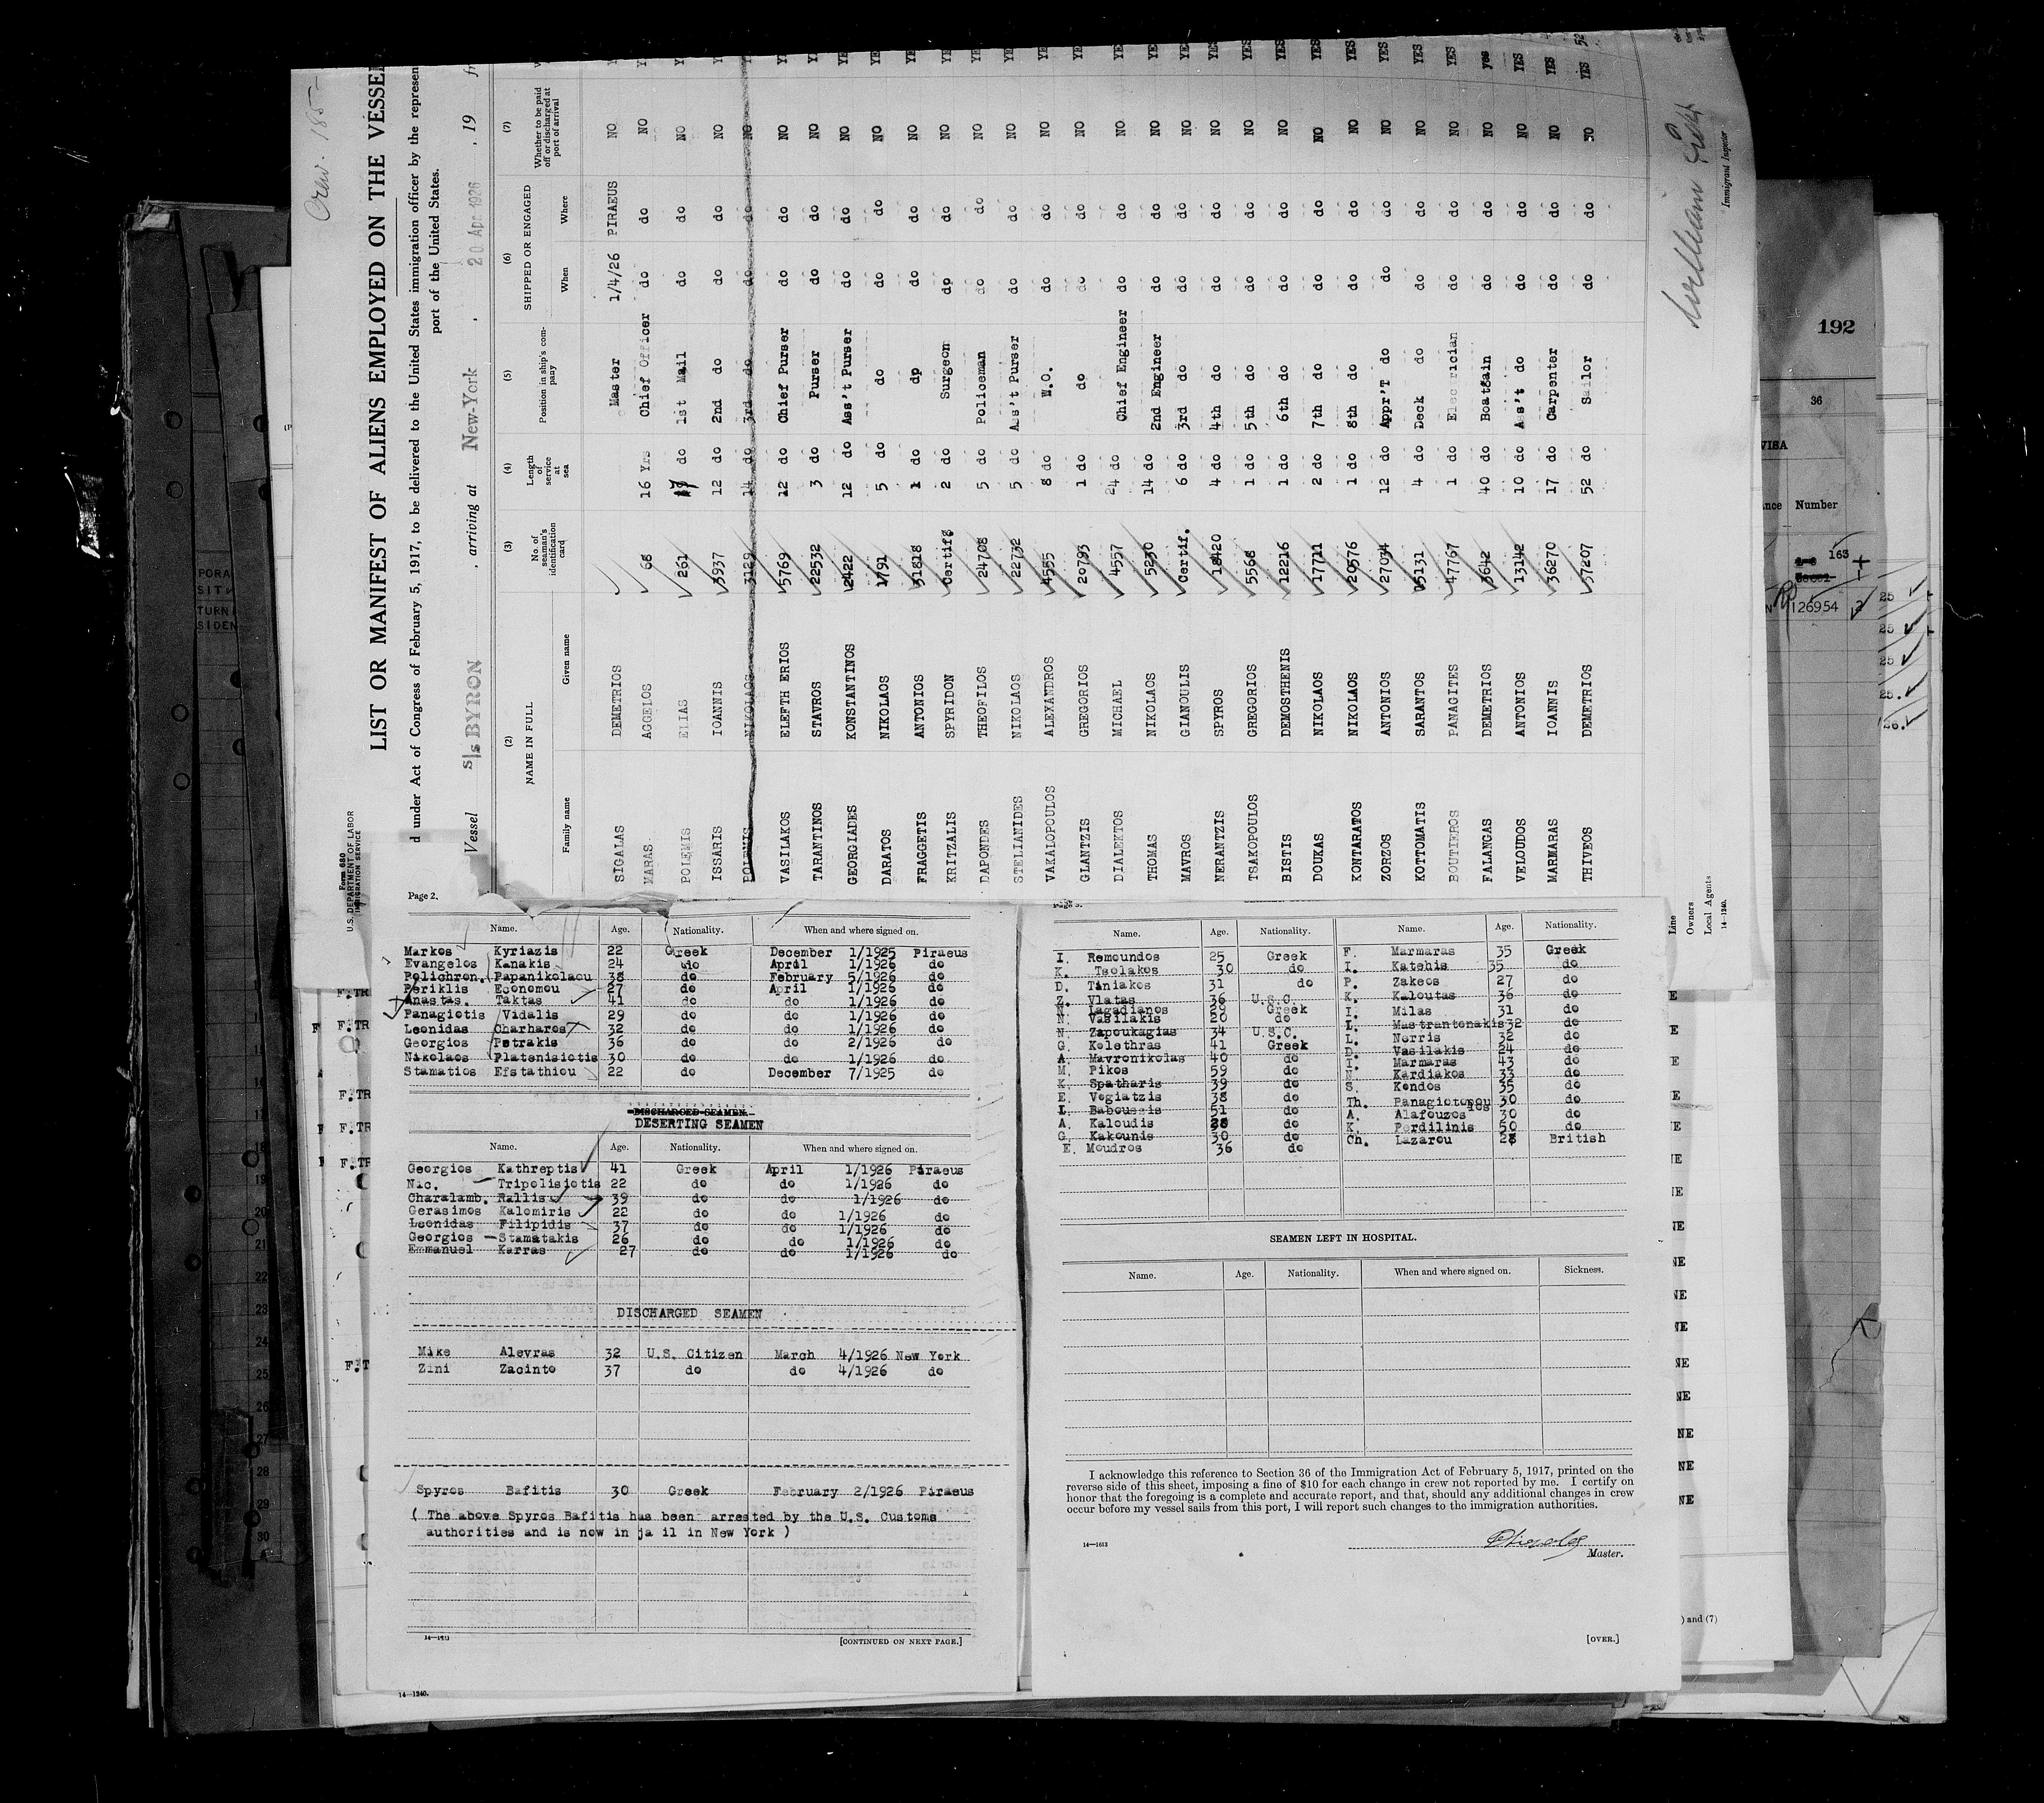 Crew. 185-
Form 680
U.S. DEPARTMENT OF LABOR
IMMIGRATION SERVICE
LIST OR MANIFEST OF ALIENS EMPLOYED ON THE VESSEL
d under Act of Congress of February 5, 1917, to be delivered to the United States immigration officer by the represen
port of the United States.
Vessel s|s BYRON , arriving at New-York , 20 Apr 1926 , 19
(2) (3) (4) (5) (6) (7)
NAME IN FULL No. of seaman's identification card Length of service at sea Position in ship's company SHIPPED OR ENGAGED Whether to be paid off or discharged at port of arrival
Family name Given name When Where
SIGALAS DEMETRIOS Master 1/4/26 PIRAEUS NO
MARAS. AGGELOS 68 16 Yrs Chief Officer do do NO
POLEMIS ELIAS 261 17 do 1st Mail do do NO
ISSARIS IOANNIS 3937 12 do 2nd do do do NO
POLEMIS NIKOLAOS 3129 14 do 3rd do do do NO
VASILAKOS ELEFTH ERIOS 5769 12 do Chief Purser do do NO YES
TARANTINOS STAVROS 22532 3 do Purser do do NO YES
GEORGIADES KONSTANTINOS 2422 12 do Ass't Purser do do NO YE
DARATOS NIKOLAOS 1791 5 do do do do NO YES
FRAGGETIS ANTONIOS 31818 1 do dp do do NO YES
KRITZALIS SPYRIDON Certifg 2 do Surgeon dp do NO YE
DAPONDES THEOFILOS 24708 5 do Policeman do do NO YES
STELIANIDES NIKOLAOS 22732 5 do Ass't Purser do do NO YES
VAKALOPOULOS ALEXANDROS 4555 8 do W.O. do do NO YE
GLANTZIS GREGORIOS 20793 1 do do do do NO YE
DIALEKTOS MICHAEL 4557 24 do Chief Engineer do do NO YES
THOMAS NIKOLAOS 5230 14 do 2nd Engineer do do NO YES
MAVROS GIANOULIS Certif. 6 do 3rd do do do NO YES
NERANTZIS SPYROS 18420 4 do 4th do do do NO YES
TSAKOPOULOS GREGORIOS 5568 1 do 5th do do do NO YES
BISTIS DEMOSTHENIS 12216 1 do 6th do do do NO YES
DOUKAS NIKOLAOS 17711 2 do 7th do do do NO YES
KONTARATOS NIKOLAOS 20576 1 do 8th do do do NO YES
ZORZOS ANTONIOS 27034 12 do Appr'T do do do NO YES
KOTTOMATIS SARANTOS 5131 4 do Deck do do do NO YES
BOUTIEROS PANAGITES 47767 1 do Electrician do do NO YES
FALANGAS DEMETRIOS 3642 40 do Boatsain do do NO yes
VELOUDOS ANTONIOS 13142 10 do Ass't do do do NO YES
MARMARAS IOANNIS 36270 17 do Carpenter do do NO YES
THIVEOS DEMETRIOS 37207 52 do Sailor do do NO YES 52
Immigrant Inspector
Line
Owners
Local Agents
14—1240.
Page 2.
Name. Age. Nationality. When and where signed on.
Markos Kyriazis 22 Greek December 1/1925 Piraeus
Evangelos Kanakis 24 do April 1/1926 do
Polichron. Papanikolaou 38 do February 5/1926 do
Periklis Economou 27 do April 1/1926 do
Anastas. Taktas 41 do do 1/1926 do
Panagiotis Vidalis 29 do do 1/1926 do
Leonidas Charharos 32 do do 1/1926 do
Georgios Petrakis 36 do do 2/1926 do
Nikolaos Platenisiotis 30 do do 1/1926 do
Stamatios Efstathiou 22 do December 7/1925 do
DISCHARGED SEAMEN.
DESERTING SEAMEN
Name. Age. Nationality. When and where signed on.
Georgios Kathreptis 41 Greek April 1/1926 Piraeus
Nic. Tripolisiotis 22 do do 1/1926 do
Charalamb. Rallis 39 do do 1/1926 do
Gerasimos Kalomiris 22 do do 1/1926 do
Leonidas Filipidis 37 do do 1/1926 do
Georgios Stamatakis 26 do do 1/1926 do
Emmanuel Karras 27 do do 1/1926 do
DISCHARGED SEAMEN
Mike Alevras 32 U.S. Citizen March 4/1926 New York
Zini Zacinto 37 do do 4/1926 do
Spyros Bafitis 30 Greek February 2/1926 Piraeus
( The above Spyros Bafitis has been arrested by the U.S. Customs
authorities and is now in ja il in New York )
[CONTINUED ON NEXT PAGE.]
14—1240.
Name. Age. Nationality. Name. Age. Nationality.
I. Remoundos 25 Greek F. Marmaras 35 Greek
K. Tsolakos 30 do I. Katehis 35 do
D. Tiniakos 31 do P. Zakeos 27 do
Z. Vlatas 36 U.S.C. K. Kaloutas 36 do
N. Lagadianos 29 Greek I. Milas 31 do
N. Vasilakis 20 do L. Mastrantonakis 32 do
N. Zapoukagias 34 U.S.C. L. Norris 32 do
G. Kolethras 41 Greek D. Vasilakis 24 do
A. Mavronikolas 40 do I. Marmaras 43 do
M. Pikos 59 do N. Kardiakos 33 do
K. Spatharis 39 do S. Kondos 35 do
E. Vogiatzis 38 do Th. Panagiotopoulos 30 do
I. Baboussis 51 do A. Alafouzos 30 do
A. Kaloudis 28 do K. Perdilinis 50 do
G. Kakounis 30 do Ch. Lazarou 28 British
E. Moudros 36 do
SEAMEN LEFT IN HOSPITAL.
Name. Age. Nationality. When and where signed on. Sickness.
I acknowledge this reference to Section 36 of the Immigration Act of February 5, 1917, printed on the
reverse side of this sheet, imposing a fine of $10 for each change in crew not reported by me. I certify on
honor that the foregoing is a complete and accurate report, and that, should any additional changes in crew
occur before my vessel sails from this port, I will report such changes to the immigration authorities.
14—1613
Master.
[OVER.]
) and (7)
192
36
VISA
Number
163
126954
25
25
25
25.
26.
PORA
SITY
TURN
SIDEN
F.TR
F.TR
F.TR
F.TR
F.TR
F.T
19
20
21
22
23
24
25
26
27
28
29
30